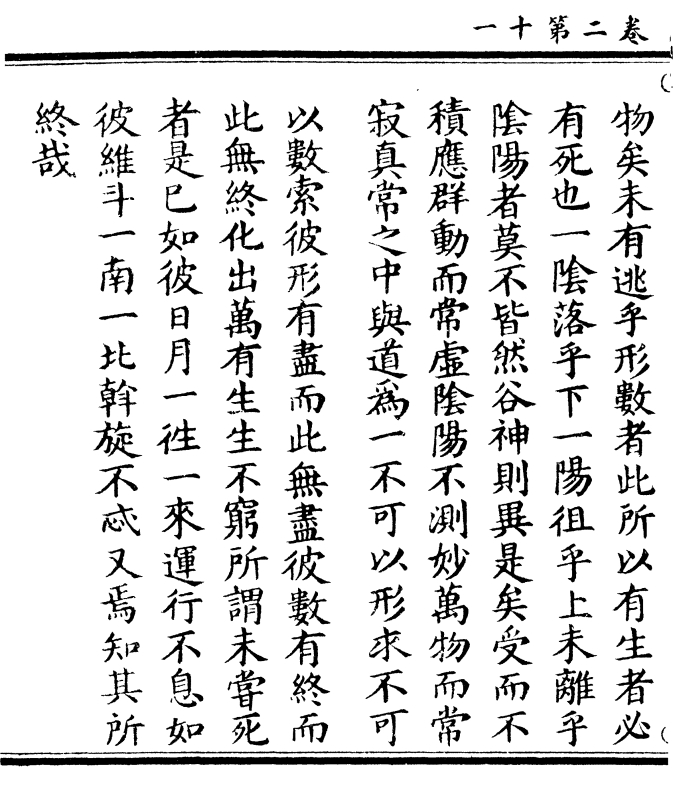 卷二第十一
物矣未有逃乎形數者此所以有生者必
有死也一陰落乎下一陽徂乎上未離乎
陰陽者莫不皆然谷神則異是矣受而不
積應群動而常虛陰陽不測妙萬物而常
寂真常之中與道爲一不可以形求不可
以數索彼形有盡而此無盡彼數有終而
此無終化出萬有生生不窮所謂未嘗死
者是巳如彼日月一徃一來運行不息如
彼維斗一南一北斡旋不忒又焉知其所
終哉